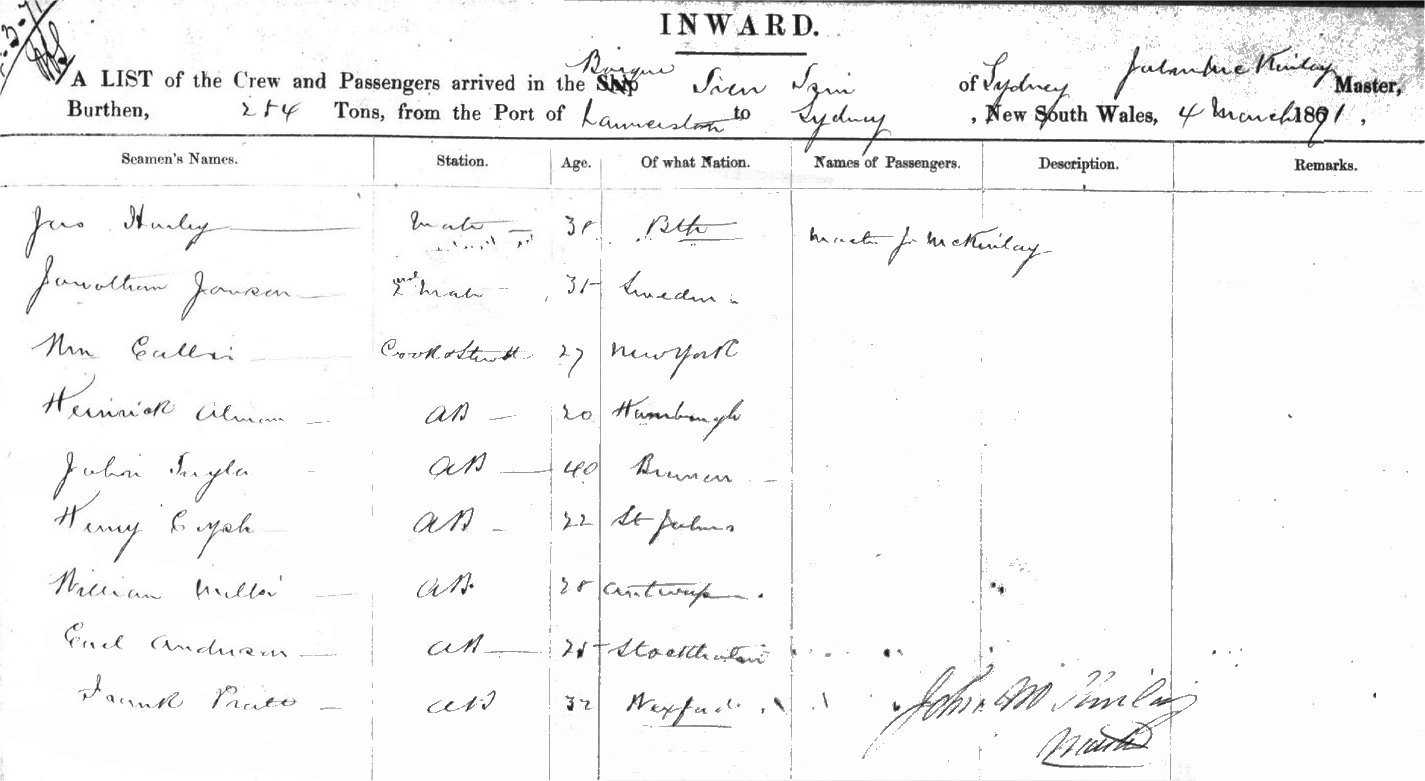 INWARD.
A LIST of the Crew and Passengers arrived in the Ship Barque Sien Tzin of Sydney John McKinlay Master,
Burthen, 254 Tons, from the Port of Launceston to Sydney, New South Wales, 4 March 1871,
Seamen's Names. Station. Age. Of what Nation. Names of Passengers. Description. Remarks.
Jas Hurley Mate 38 Bth Master J McKinlay
Jonathan Jonson 2nd Mate 35 Sweden
Wm Cook & Stewd 27 New York
Heinrick Alman AB 20 Hamburgh
John AB 40 Bremen
Henry AB 22 St Johns
William Miller AB 28 Antwerp
Anderson AB 25 Stockholm
Frank Prato AB 32 Wexford
John McKinlay
Master